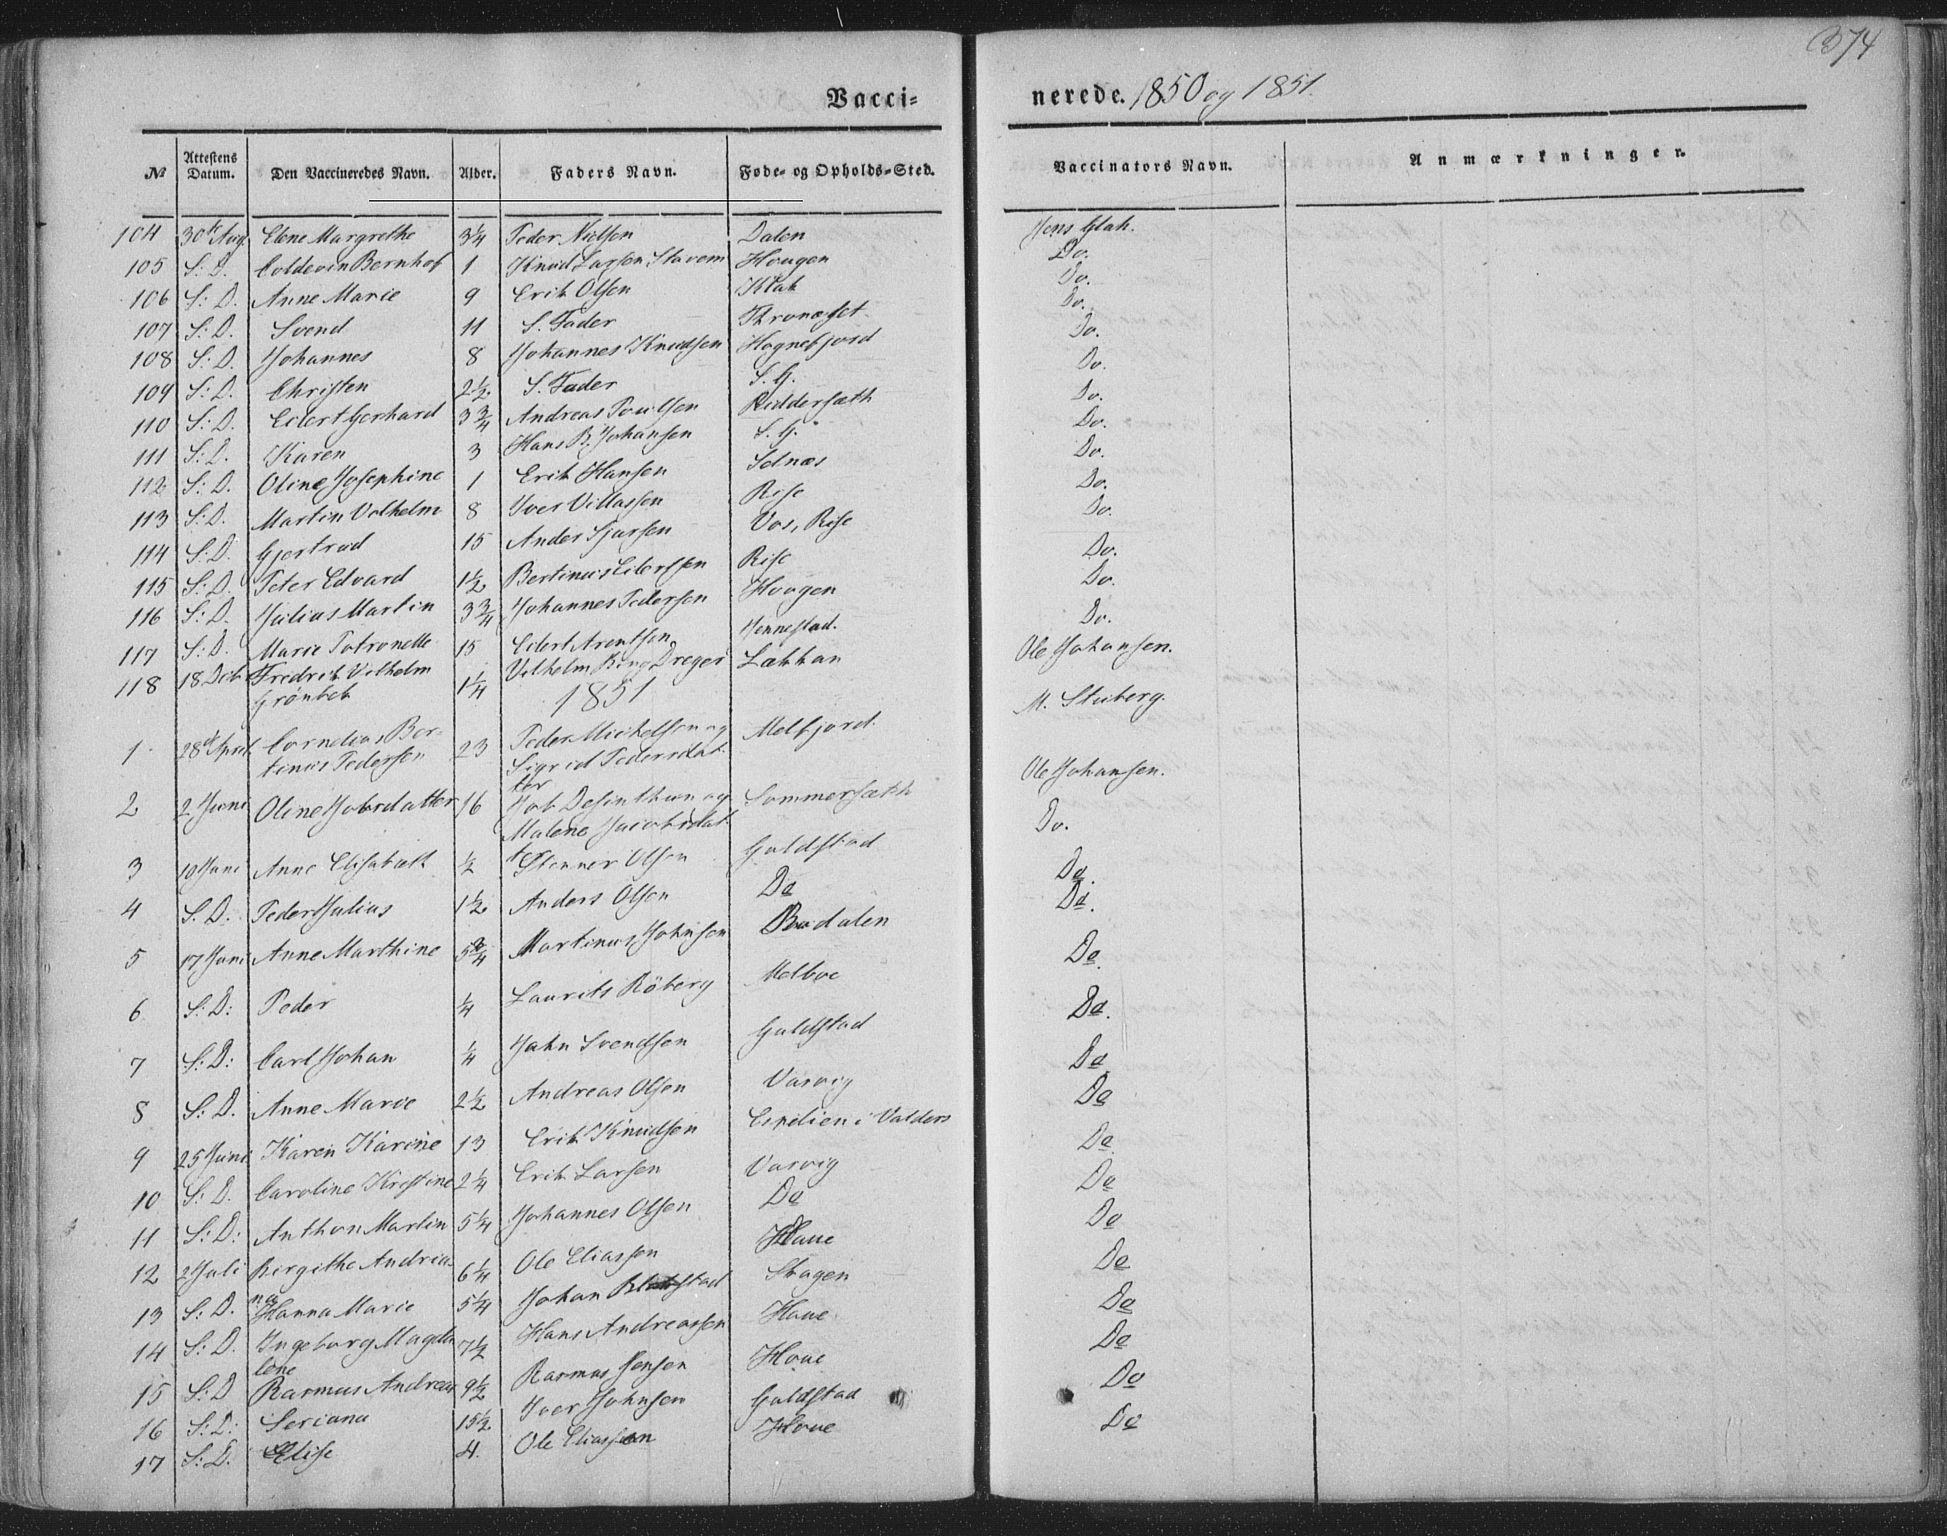 374
Vacci-
nerede. 1850 og 1851.
№ Attestens Datum. Den Vaccineredes Navn. Alder. Faders Navn. Føde- og Opholds-Sted. Vaccinators Navn. Anmærkninger.
104 30te Aug. Elene Margrethe 3¼ Peder Nielsen Dalen Jens Klak.
105 S: D. Coldevin Bernhof 1 Knud Larsen Stavem Hougen Do.
106 S: D. Anne Marie 9 Erik Olsen Klak Do.
107 S: D. Svend 11 S. Fader Thronæset Do.
108 S: D. Johannes 8 Johannes Knudsen Hognefjord Do.
109 S: D. Christen 2½ S. Fader S. G. Do.
110 S: D. Eilert Gerhard 3¾ Andreas Poulsen Riddersæth Do.
111 S: D. Karen 3 Hans B. Johansen S. G. Do.
112 S: D. Oline Josephine 1 Erik Hansen Selnæs Do.
113 S: D. Martin Velhelm 8 Iver Villassen Rise Do.
114 S: D. Gjertrud 15 Ander Sjursen Vos, Rise Do.
115 S: D. Peter Edvard 1½ Bertinus Eilertsen Rise Do.
116 S: D. Julius Martin 3¾ Johannes Pedersen Hougen Do.
117 S: D. Marie Petronelle 15 Eilert Arentsen Jennestad. Do.
118 18 Deb Fredrik Vilhelm 1¼ Vilhelm Bing Dreyer Løkkan Ole Johansen.
Grönbek
1851
1 28de April Cornelius Ber- 23 Peder Mickelsen og Melfjord M. Stuberg.
tinus Pedersen Sigrid Pedersdat-
ter
2 2 Juni Oline Jobsdatter 16 Job Desinthun og Sommersæth Ole Johansen.
Malene Jacobsdat-
t
3 10 Juni Anne Elisabeth ½ Stenner Olsen Guldstad Do.
4 S. D. Peder Julius 1½ Anders Olsen Do Do.
5 17 Juni Anne Marthine 5¾ Martinus Johnsen Budalen Do.
6 S: D: Peder ¼ Laurits Röberg Melboe Do.
7 S: D: Carl Johan ¼ John Svendsen Guldstad Do.
8 S: D. Anne Marie 2½ Andreas Olsen Varvig Do
9 25 Juni Karen Karine 13 Erik Knudsen Espelien i Valders Do
10 S: D. Caroline Kristine 2¼ Erik Larsen Varvig Do
11 S: D: Anthon Martin 5¼ Johannes Olsen Do Do
12 2 Juli Birgithe Andrea- 6¼ Ole Eliassen Houe Do
na
13 S: D. Hanna Marie 5¼ Johan Blokstad Skagen Do
14 S: D. Ingeborg Magda 7½ Hans Andreassen Houe Do
lene
15 S: D Rasmus Andreas 9½ Rasmus Jensen Houe Do
16 S: D: Seriana 15½ Iver Johnsen Guldstad Do
17 S: D. Elise 4. Ole Eliassen Houe Do